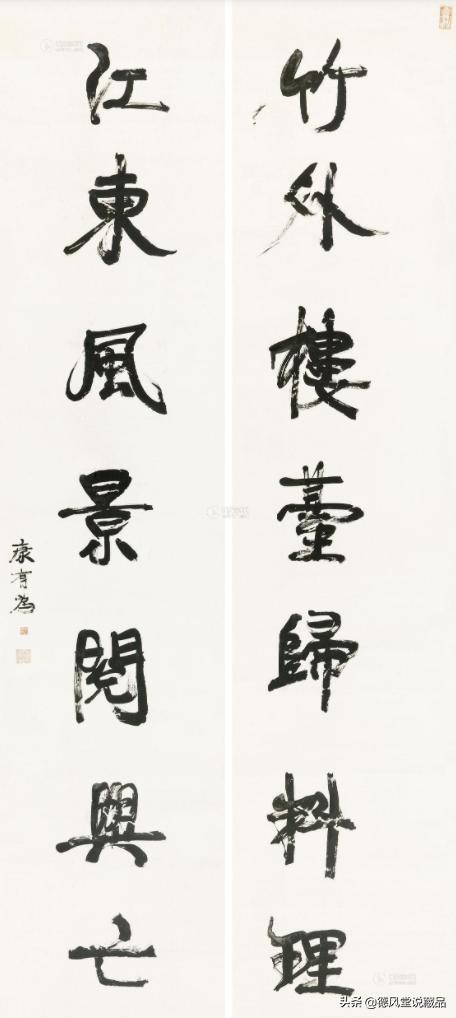 竹外樓臺歸料理
江東風景閱興亡
康有為
头条 @德风堂说藏品